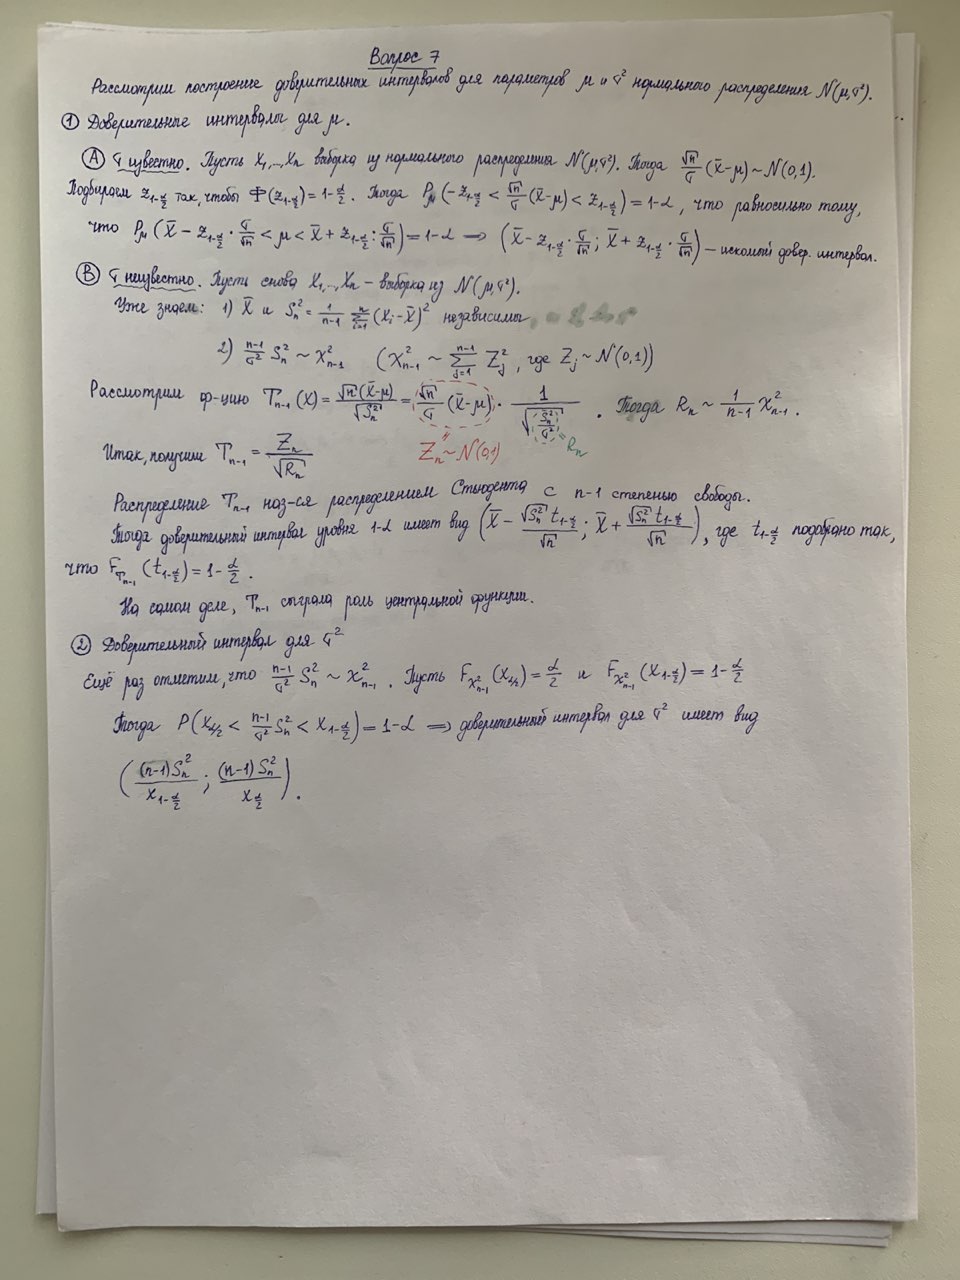 Вопрос 7
Рассмотрим построение доверительных интервалов для параметров μ и σ² нормального распределения N(μ,σ²).
① Доверительные интервалы для μ.
Ⓐ σ известно. Пусть X₁,...,Xₙ выборка из нормального распределения N(μ,σ²). Тогда √n/σ (X̄-μ) ~ N(0,1).
Подбираем z_{1-α/2} так, чтобы Ф(z_{1-α/2}) = 1-α/2. Тогда P_μ(-z_{1-α/2} < √n/σ (X̄-μ) < z_{1-α/2}) = 1-α, что равносильно тому,
что P_μ(X̄ - z_{1-α/2}·σ/√n < μ < X̄ + z_{1-α/2}·σ/√n) = 1-α ⟹ (X̄ - z_{1-α/2}·σ/√n ; X̄ + z_{1-α/2}·σ/√n) – искомый довер. интервал.
Ⓑ σ неизвестно. Пусть снова X₁,...,Xₙ – выборка из N(μ,σ²).
Уже знаем: 1) X̄ и Sₙ² = 1/(n-1) ∑_{i=1}^{n} (X_i - X̄)² независимы
2) (n-1)/σ² Sₙ² ~ χ²_{n-1} (χ²_{n-1} ~ ∑_{j=1}^{n-1} Z_j², где Z_j ~ N(0,1))
Рассмотрим ф-цию T_{n-1}(X) = √n(X̄-μ)/√(Sₙ²) = √n/σ (X̄-μ) · 1/√(Sₙ²/σ²). Тогда Rₙ ~ 1/(n-1) χ²_{n-1}.
Zₙ ~ N(0,1) = Rₙ
Итак, получим T_{n-1} = Zₙ/√Rₙ
Распределение T_{n-1} наз-ся распределением Стьюдента с n-1 степенью свободы.
Тогда доверительный интервал уровня 1-α имеет вид (X̄ - √(Sₙ²) t_{1-α/2}/√n ; X̄ + √(Sₙ²) t_{1-α/2}/√n), где t_{1-α/2} подобрано так,
что F_{T_{n-1}}(t_{1-α/2}) = 1-α/2.
На самом деле, T_{n-1} сыграла роль центральной функции.
② Доверительный интервал для σ²
Ещё раз отметим, что (n-1)/σ² Sₙ² ~ χ²_{n-1}. Пусть F_{χ²_{n-1}}(x_{α/2}) = α/2 и F_{χ²_{n-1}}(x_{1-α/2}) = 1-α/2
Тогда P(x_{α/2} < (n-1)/σ² Sₙ² < x_{1-α/2}) = 1-α ⟹ доверительный интервал для σ² имеет вид
((n-1)Sₙ²/x_{1-α/2} ; (n-1)Sₙ²/x_{α/2}).